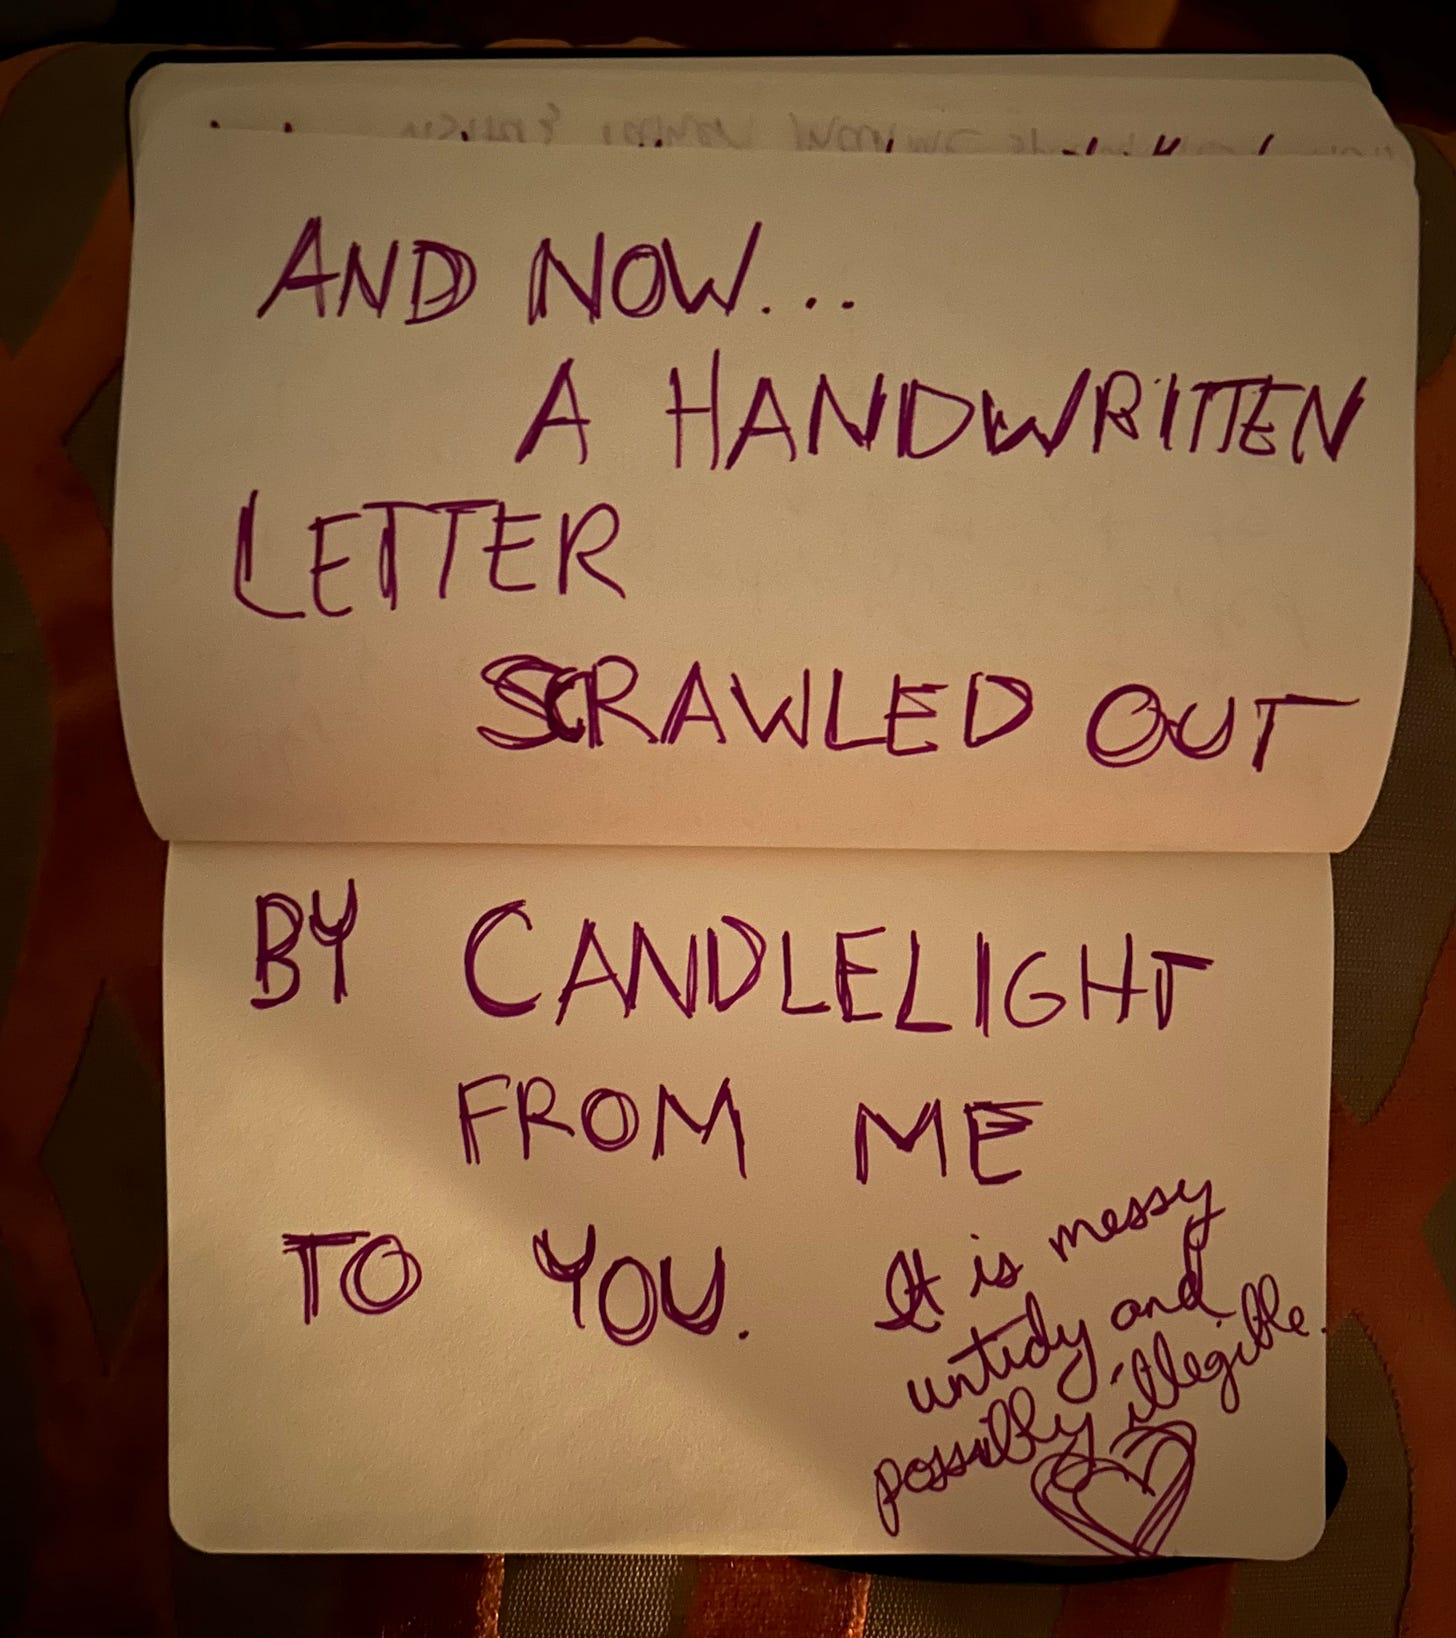 AND NOW...
A HANDWRITTEN
LETTER
SCRAWLED OUT
BY CANDLELIGHT
FROM ME
TO YOU.
It is messy
untidy and
possibly illegible.